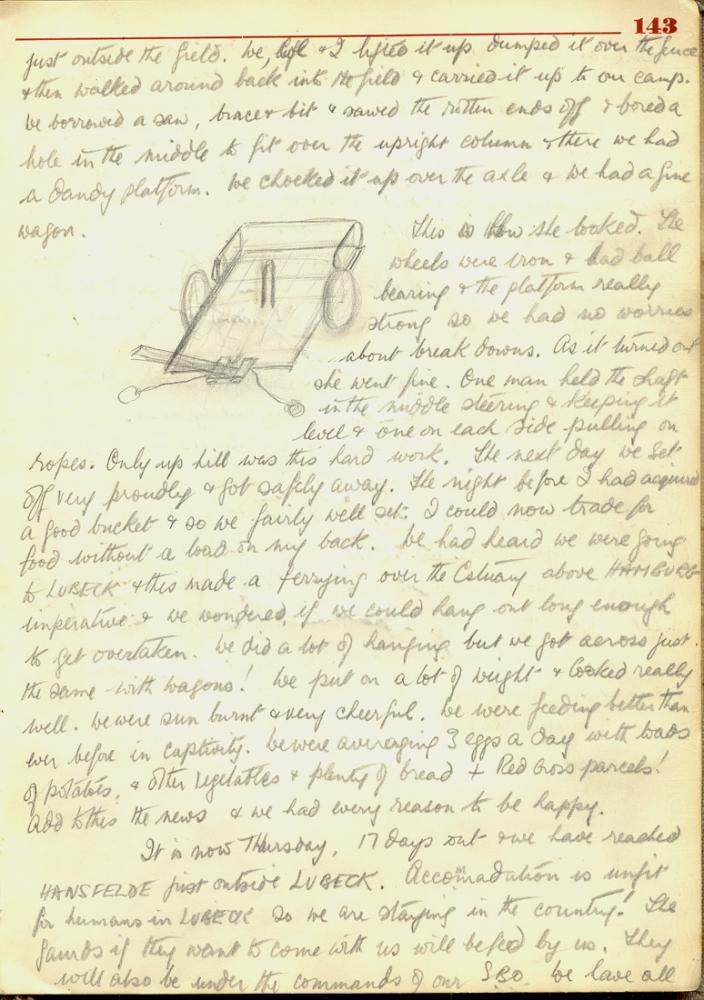 143
just outside the field. We, & I lifted it up dumped it over the fence
& then walked around back into the field & carried it up to our camp.
We borrowed a saw, brace & bit & sawed the rotten ends off & bored a
hole in the middle to fit over the upright column & there we had
a dandy platform. We chocked it up over the axle & we had a fine
wagon.
This is how she looked. The
wheels were iron & had ball
bearing & the platform really
strong so we had no worries
about break downs. As it turned out
she went fine. One man held the shaft
in the middle steering & keeping it
level & one on each side pulling on
ropes. Only up hill was this hard work. The next day we set
off very proudly & got safely away. The night before I had acquired
a good bucket & so we fairly well set. I could now trade for
food without a load on my back. We had heard we were going
to LUBECK & this made a ferrying over the Estuary above HAMBURG
imperative & we wondered if we could hang out long enough
to get overtaken. We did a lot of hanging but we got across just
the same with wagons! We put on a lot of weight & looked really
well. We were sun burnt & very cheerful. We were feeding better than
ever before in captivity. We were averaging 3 eggs a day with loads
of potatoes, & other vegetables & plenty of bread + Red Cross parcels!
Add to this the news & we had every reason to be happy.
It is now Thursday, 17 days out & we have reached
HANSFELDE just outside LUBECK. Accomadation is unfit
for humans in LUBECK so we are staying in the country! The
gaurds if they want to come with us will be fed by us. They
will also be under the commands of our S.B.O. We have all